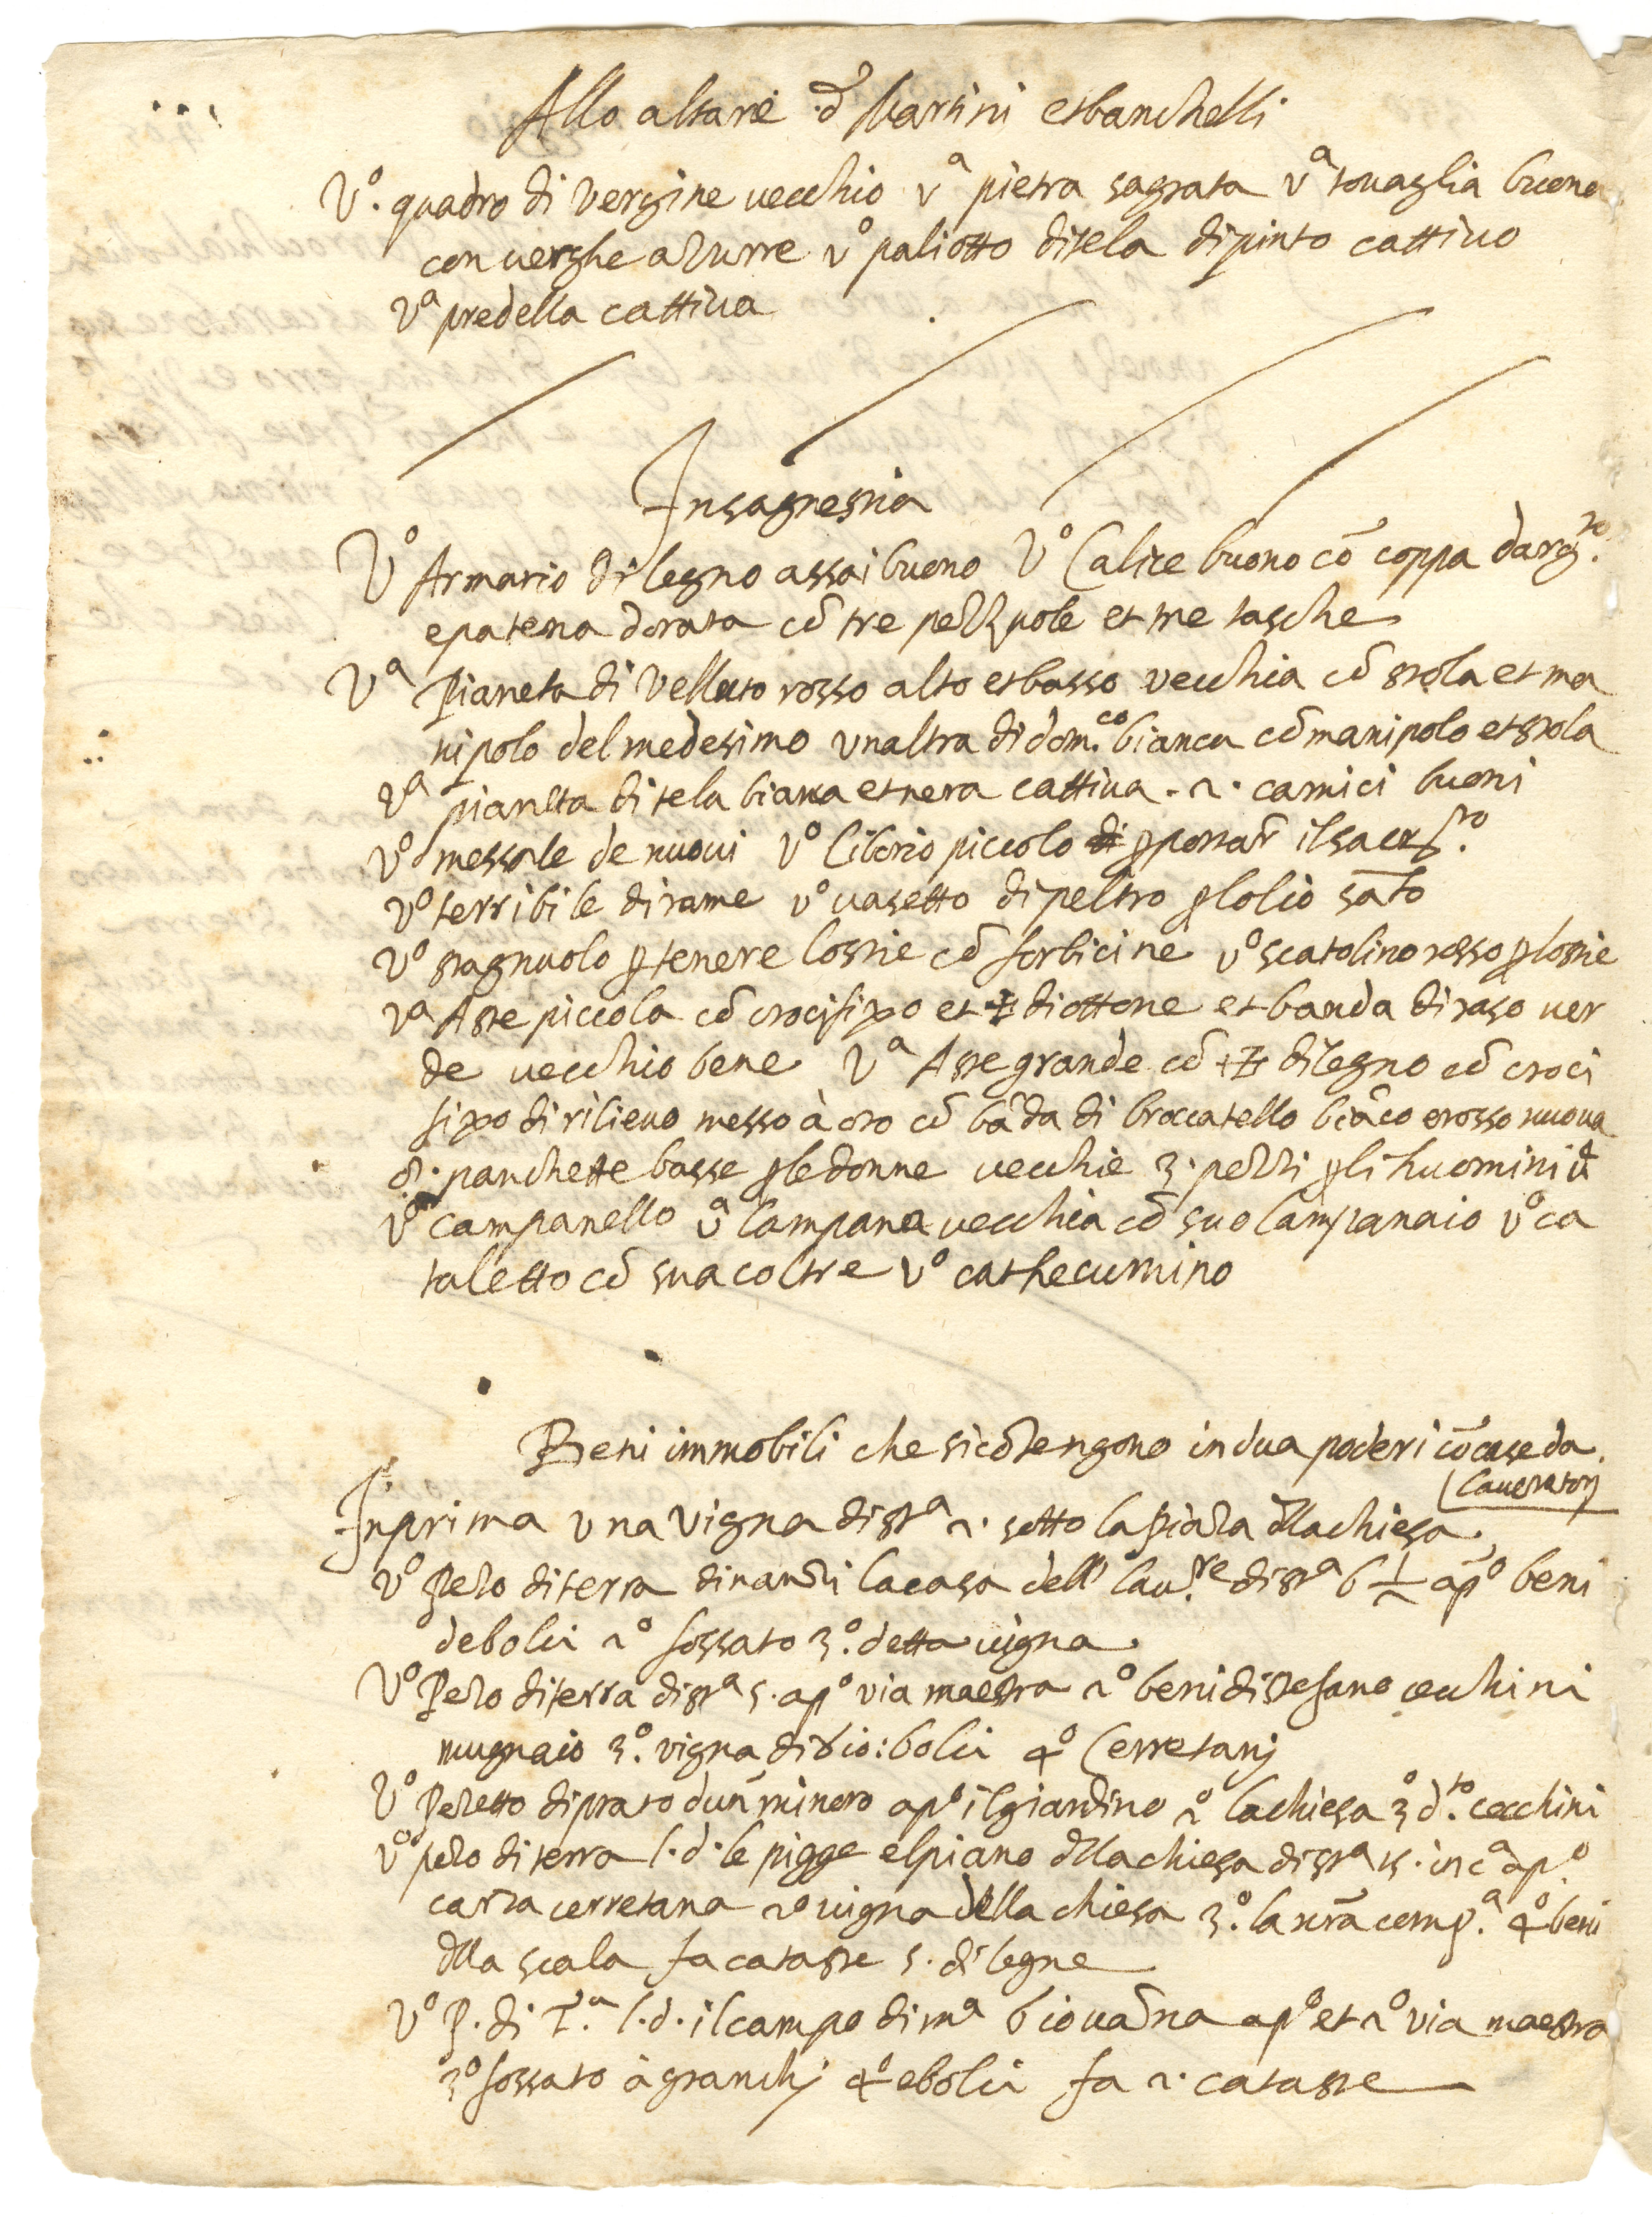 Allo altare d Martini et banchelli
Vº. quadro di Vergine vecchio vª pietra sagrata vª tovaglia buona
con verghe azurre vº paliotto di tela dipinto cattivo
Vª predella cattiva
In sagrestia
Vº Armario di legno assai buono Vº Calice buono cō coppa dargᵗᵒ.
e patena dorata cō tre pezzuole et tre tasche
Vª Pianeta di velluto rosso alto et basso vecchia cō stola et ma
nipolo del medesimo unaltra di dom.ᶜᵒ bianca cō manipolo et stola
Vª pianeta di tela bianca et nera cattiva . 2 . camici buoni
Vº messale de nuovi Vº Ciborio piccolo ꝑ portar il sacrᵗᵒ.
vº terribile di rame vº vasetto di peltro ꝑ lolio sāto
Vº stagnuolo ꝑ tenere lostie cō forbicine vº scatolino rosso ꝑ lostie
vª Aste piccola cō crocifixo et ✝ di ottone et banda di raso ver
de vecchio bene Vª Aste grande cō ✝ di legno cō croci
fixo di rilievo messo à oro cō bāda di broccatello biāco e rosso nuova
8. panchette basse ꝑ le donne vecchie 3. pezzi ꝑ li huomini
vº campanello vª campana vecchia cō suo campanaio vº ca
taletto cō sua coltre vº cathecumino
Beni immobili che si cōtengono in dua poderi cō case da
lavoratorj
In prima una vigna di stª 2. sotto la piaza dlla chiesa.
Vº Pezo di terra dinanzi la casa dell lav.ʳᵉ di stª 6 ½ apº beni
de bolci 2º fossato 3º. detta vigna.
Vº Pezo di terra di stª 5. apº via maestra 2º beni di stefano cecchini
mugnaio 3º. vigna di Gio: bolci 4º Cerretanj
Vº Pezetto di prato dun minoro apº il giardino 2º la chiesa 3º d.ᵗᵒ cecchini
vº pezo di terra l. d. le pigge el piano dlla chiesa di stª 15. in cª apº.
carza cerretana 2º vigna della chiesa 3º. la nrā comp.ª 4º beni
dlla scala fa cataste 5. di legne
Vº P. di T.ª l. d. il campo di mª Giovāna apº et 2º via maestra
3º fossato à granchj 4º e bolci fa 2. cataste